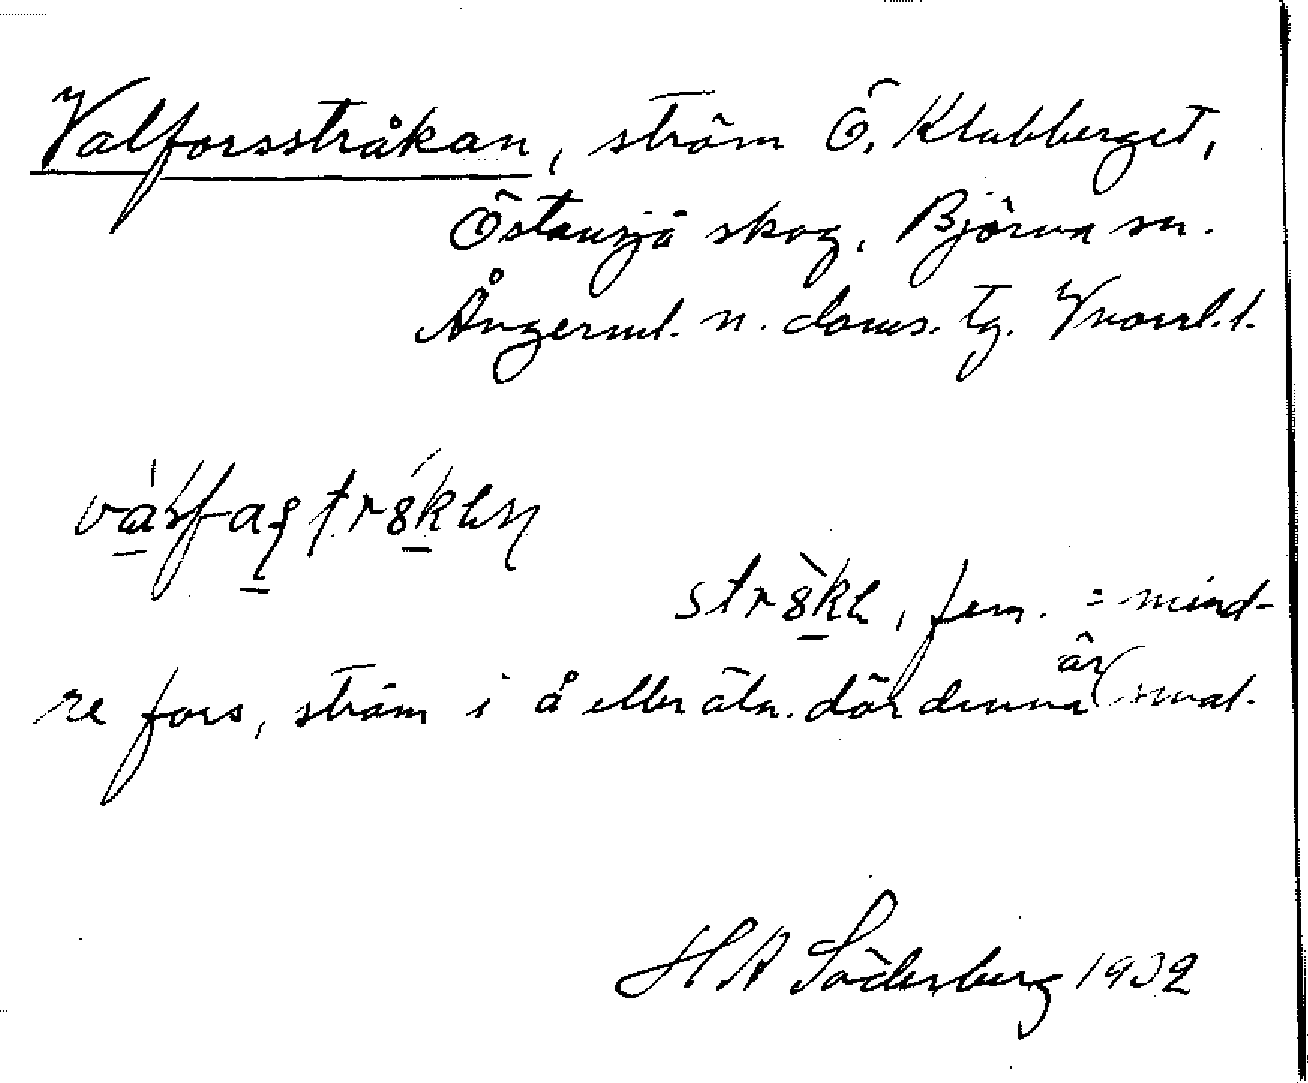 Valforsstråkan, ström Ö. Klubberget,
Östansjö skog, Björna sn.
Ångerml. n. doms. tg. Vnorrl. l.
stråk, fem. = mind-
re fors, ström i å eller älv. där denna är smal.
H A Söderberg 1932